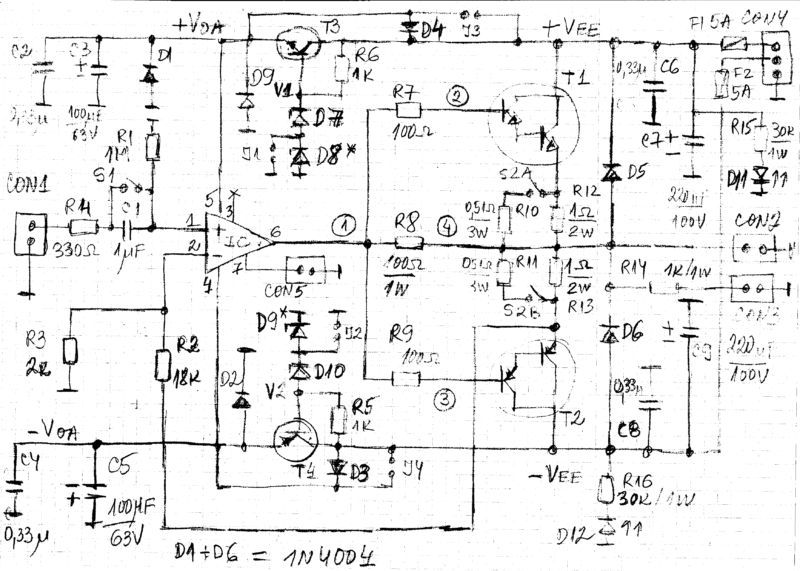 +VOA
T3
D4
J3
+VEE
F1 5A
CON4
C2
C3
±
D1
D9
R6
1K
V1
D7
D8*
J1
R7
100Ω
②
T1
0,33µ
C6
F2
5A
C7
±
R15
30K
1W
0,33µ
100µF
63V
R1
1M
S1
S2A
R12
D5
D11
220µF
100V
CON1
R14
330Ω
C1
1µF
5
3
*
1
+
2
-
IC
6
7
4
①
R8
100Ω
1W
④
0,51Ω
3W
R10
1Ω
2W
0,51Ω
3W
R11
1Ω
2W
S2B
R13
R14
1K/1W
CON5
D9*
J2
D10
V2
R9
100Ω
③
D6
±
220µF
100V
R3
2K
R2
18K
D2
R5
1K
T2
0,33µ
C8
-VOA
C4
C5
+
100µF
63V
0,33µ
T4
D3
J4
-VEE
R16
30K/1W
D12
D1÷D6 = 1N4004